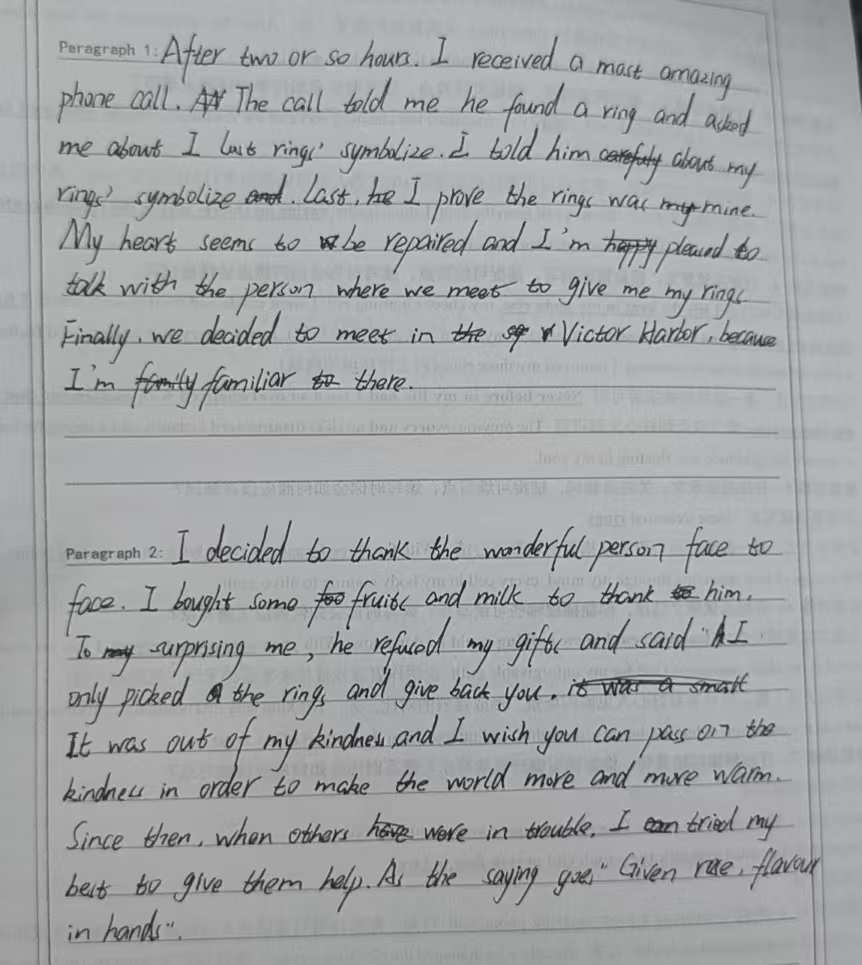 Paragraph 1: After two or so hours. I received a most amazing
phone call. The call told me he found a ring and asked
me about I lost rings' symbolize. I told him about my
rings' symbolize. Last, I prove the rings was mine.
My heart seems to be repaired and I'm pleased to
talk with the person where we meet to give me my rings
Finally, we decided to meet in Victor Harbor, because
I'm familiar there.
Paragraph 2: I decided to thank the wonderful person face to
face. I bought some fruits and milk to thank him.
To surprising me, he refused my gifts and said "I
only picked the rings and give back you.
It was out of my kindness, and I wish you can pass on the
kindness in order to make the world more and more warm.
Since then, when others were in trouble, I tried my
best to give them help. As the saying goes "Given rose, flavour
in hands".